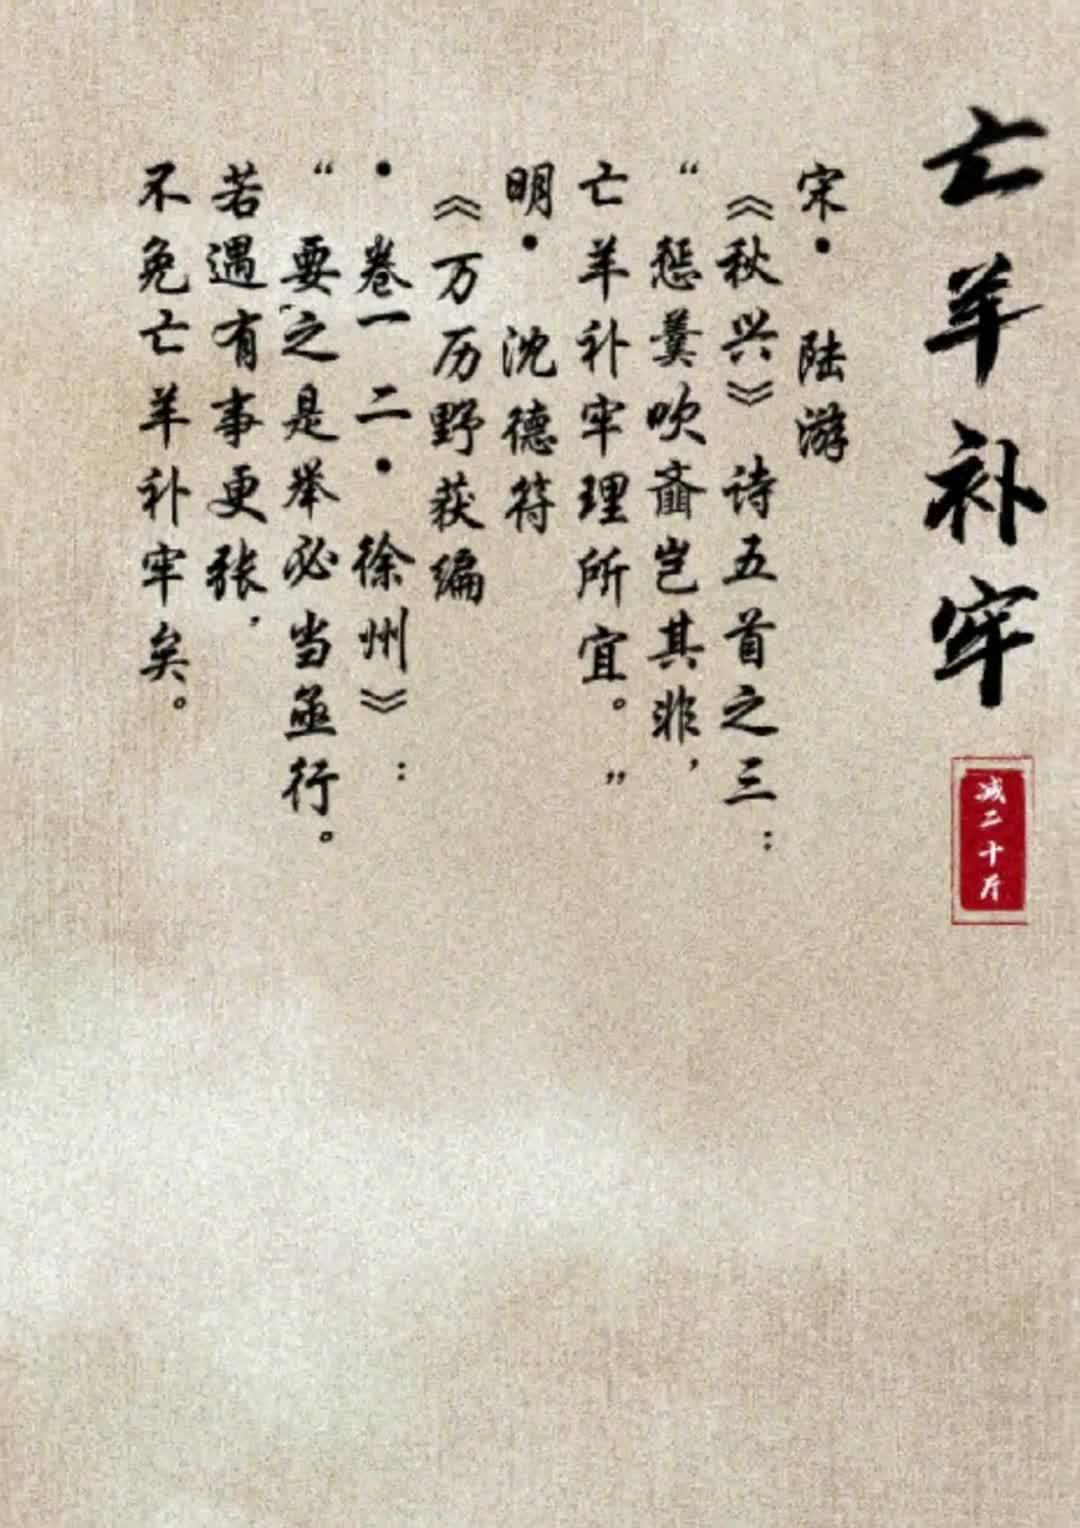 亡羊补牢
减二十斤
宋·陆游
《秋兴》诗五首之三：
“惩羹吹齑岂其非，
亡羊补牢理所宜。”
明·沈德符
《万历野获编
·卷一二·徐州》：
“要之是举必当亟行。
若遇有事更张，
不免亡羊补牢矣。